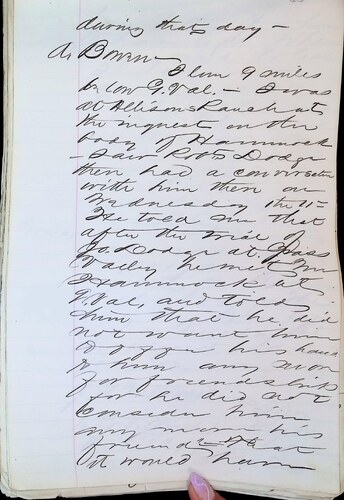 during that day -
A. Bowen -
I live 9 miles
below G. Val. - I was
at Allisons Ranch at
the inquest on the
body of Hammock
- I saw Robt Dodge
then had a conversation
with him then on
Wednesday the 11th
He told me that
after the trial of
Jo. Dodge at Grass
Valley he met Mr
Hammock at
G. Val, and told
him that he did
not want him
to offer his hand
to him any more
for friendship
for he did not
consider him
any more his
friend & that
it would have